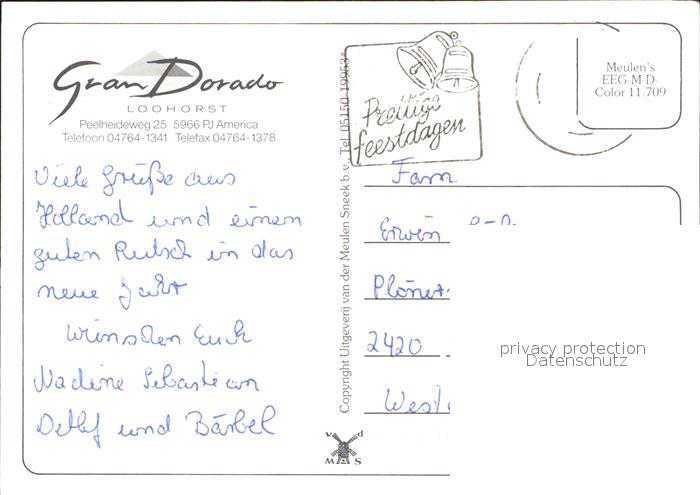 Gran Dorado
LOOHORST
Peelheideweg 25 5966 PJ America
Telefoon 04764-1341 Telefax 04764-1378
Viele Grüße aus
Holland und einen
guten Rutsch in das
neue Jahr
wünschen Euch
Nadine Sebastian
Detlef und Bärbel
Copyright Uitgeverij van der Meulen Sneek b.v. Tel. 05150-19953*
v d
M S
Prettige
feestdagen
Meulen's
EEG-M-D-
Color 11.709
Fam
Erwin
Plöner
2420
West
privacy protection
Datenschutz